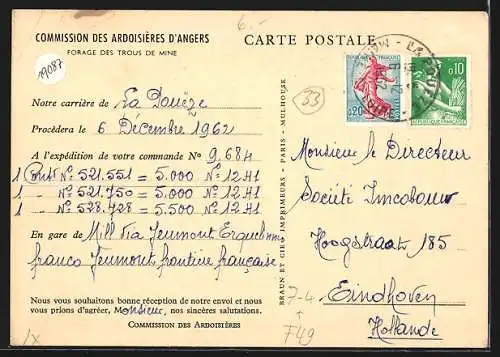 6.-
COMMISSION DES ARDOISIÈRES D'ANGERS
FORAGE DES TROUS DE MINE
19087
CARTE POSTALE
RÉPUBLIQUE FRANÇAISE
0,20
0,10
33
Notre carrière de La Pouëze
Procèdera le 6 Décembre 1962
A l'expédition de votre commande No 9.684
1 Cont No 521.551 = 5.000 No 12 H1
1 - No 521.750 = 5.000 No 12 H1
1 - No 528.728 = 5.500 No 12 H1
En gare de Mill via Jeumont Erquelinnes
franco Jeumont frontière française
Nous vous souhaitons bonne réception de notre envoi et nous
vous prions d'agréer, Monsieur, nos sincères salutations.
COMMISSION DES ARDOISIÈRES
BRAUN ET CIE, IMPRIMEURS - PARIS - MULHOUSE
Monsieur le Directeur
Société Imcobouw
Hoogstraat 185
Eindhoven
Hollande
7-4
F49